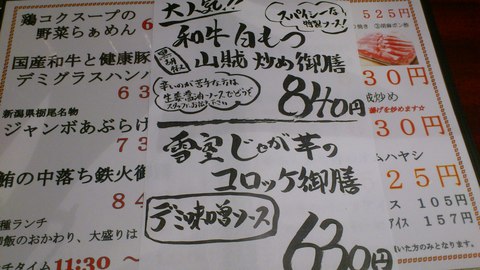 鶏コクスープの
野菜らぁめん
国産和牛と健康豚
デミグラスハン
63
新潟県栃尾名物
ジャンボあぶらげ
73
鮪の中落ち鉄火御
84
種ランチ
御飯のおかわり、大盛りは
チタイム 11:30 ～
大人気!!
スパイシーな
特製ソース!
和牛白もつ
山賊炒め御膳
辛いのが苦手な方は
生姜醤油ソースでどうぞ
840円
雪室じゃが芋の
コロッケ御膳
デミ味噌ソース
630円
525円
30円
炒め
揚げを炒めます☆
30円
ムハヤシ
25円
ス 105円
アイス 157円
いた方のみとなります。